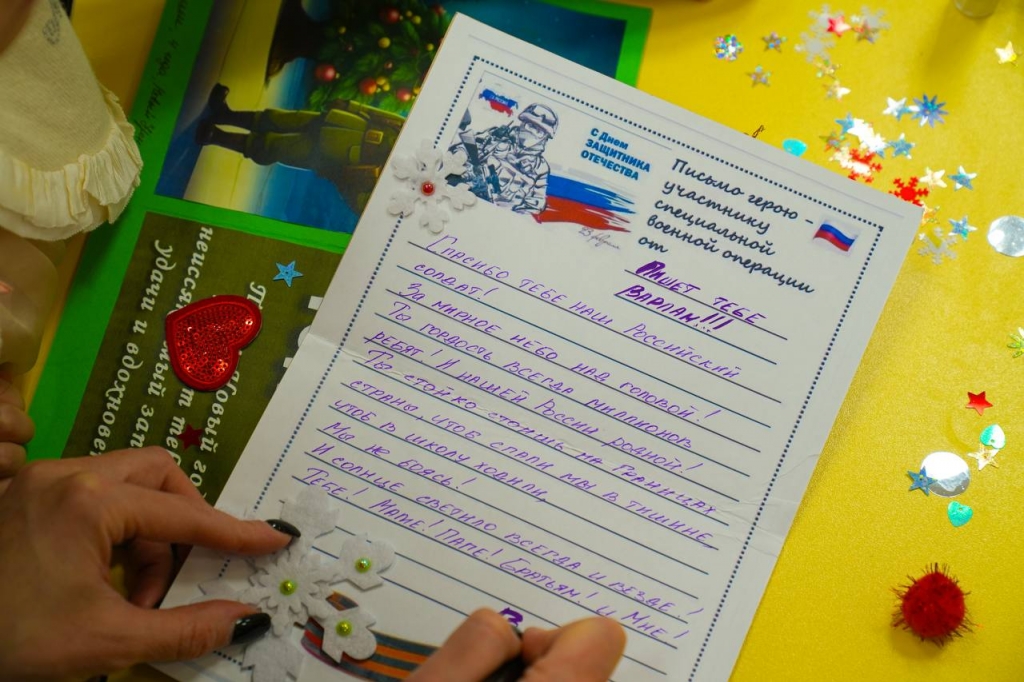 С Днем
ЗАЩИТНИКА
ОТЕЧЕСТВА
Письмо герою -
участнику
специальной
военной операции
от
Пишет тебе
Варлам!!!
Спасибо тебе наш Российский
солдат!
За мирное небо над головой!
Ты гордость всегда миллионов
ребят! И нашей России родной!
Ты стойко стоишь на границах
страны, чтоб спали мы в тишине,
чтоб в школу ходили
Мы не боясь!
И солнце светило всегда и везде!
Тебе! Маме! Папе! Братьям! и Мне!
В
неисся
удачи и вдохнове
Новый го